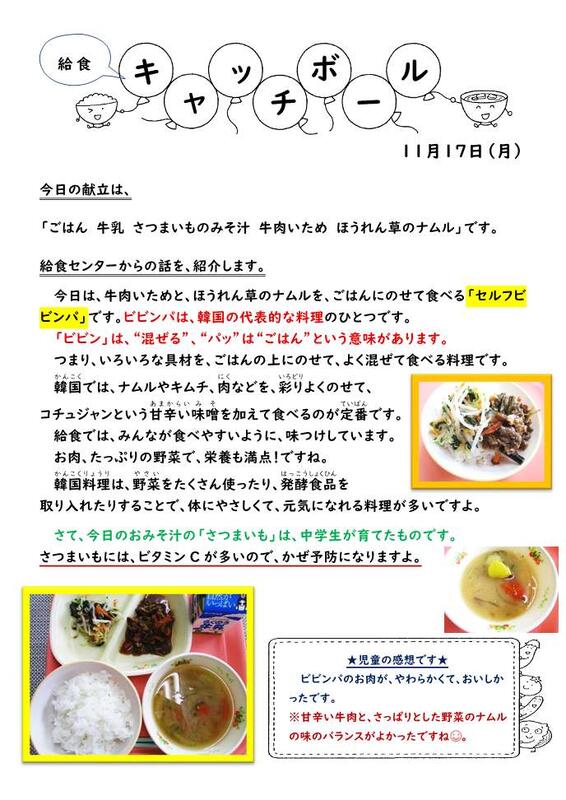 給食
キャッチボール
11月17日(月)
今日の献立は、
「ごはん 牛乳 さつまいものみそ汁 牛肉いため ほうれん草のナムル」です。
給食センターからの話を、紹介します。
今日は、牛肉いためと、ほうれん草のナムルを、ごはんにのせて食べる「セルフビ
ビンパ」です。ビビンパは、韓国の代表的な料理のひとつです。
「ビビン」は、“混ぜる”、“パッ”は“ごはん”という意味があります。
つまり、いろいろな具材を、ごはんの上にのせて、よく混ぜて食べる料理です。
かんこく にく いろどり
韓国では、ナムルやキムチ、肉などを、彩りよくのせて、
あまからい みそ ていばん
コチュジャンという甘辛い味噌を加えて食べるのが定番です。
給食では、みんなが食べやすいように、味つけしています。
お肉、たっぷりの野菜で、栄養も満点!ですね。
かんこくりょうり やさい はっこうしょくひん
韓国料理は、野菜をたくさん使ったり、発酵食品を
取り入れたりすることで、体にやさしくて、元気になれる料理が多いですよ。
さて、今日のおみそ汁の「さつまいも」は、中学生が育てたものです。
さつまいもには、ビタミンCが多いので、かぜ予防になりますよ。
★児童の感想です★
ビビンパのお肉が、やわらかくて、おいしか
ったです。
※甘辛い牛肉と、さっぱりとした野菜のナムル
の味のバランスがよかったですね☺。